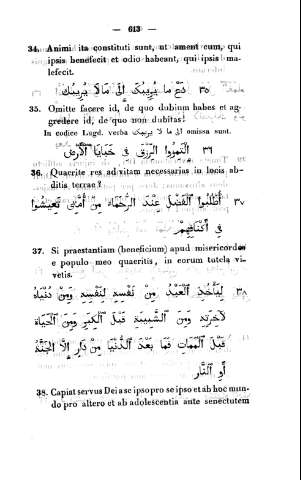 — 613 —
34. Animi ita constituti sunt, ut ament eum, qui
ipsis benefecit et odio habeant, qui ipsis ma-
lefecit.
٣٥ دَعْ مَا يُرِيبُكَ إِلَى مَا لَا يُرِيبُكَ
35. Omitte facere id, de quo dubium habes et ag-
gredere id, de quo non dubitas!
In codice Lugd. verba الى ما لا يريبك omissa sunt.
٣٦ اِلْتَمِسُوا الرِّزْقَ فِى خَبَايَا الْأَرْضِ
36. Quaerite res ad vitam necessarias in locis ab-
ditis terrae!
٣٧ أُطْلُبُوا الْفَضْلَ عِنْدَ الرُّحَمَاءِ مِنْ أُمَّتِى تَعِيشُوا
فِى أَكْنَافِهِمْ
37. Si praestantiam (beneficium) apud misericordes
e populo meo quaeritis, in eorum tutela vi-
vetis.
٣٨ لِيَأْخُذِ الْعَبْدُ مِنْ نَفْسِهِ لِنَفْسِهِ وَمِنْ دُنْيَاهُ
لِآخِرَتِهِ وَمِنَ الشَّبِيبَةِ قَبْلَ الْكِبَرِ وَمِنَ الْحَيَاةِ
قَبْلَ الْمَمَاتِ فَمَا بَعْدَ الدُّنْيَا مِنْ دَارٍ إِلَّا الْجَنَّةُ
أَوِ النَّارُ
38. Capiat servus Dei a se ipso pro se ipso et ab hoc mun-
do pro altero et ab adolescentia ante senectutem